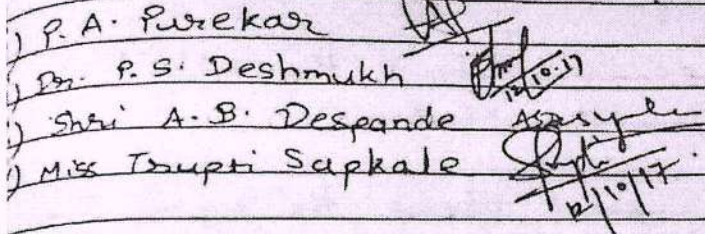 ) P. A. Purekar
) Dr. P. S. Deshmukh 12/10/17
) Shri A. B. Despande
) Miss Trupti Sapkale 12/10/17